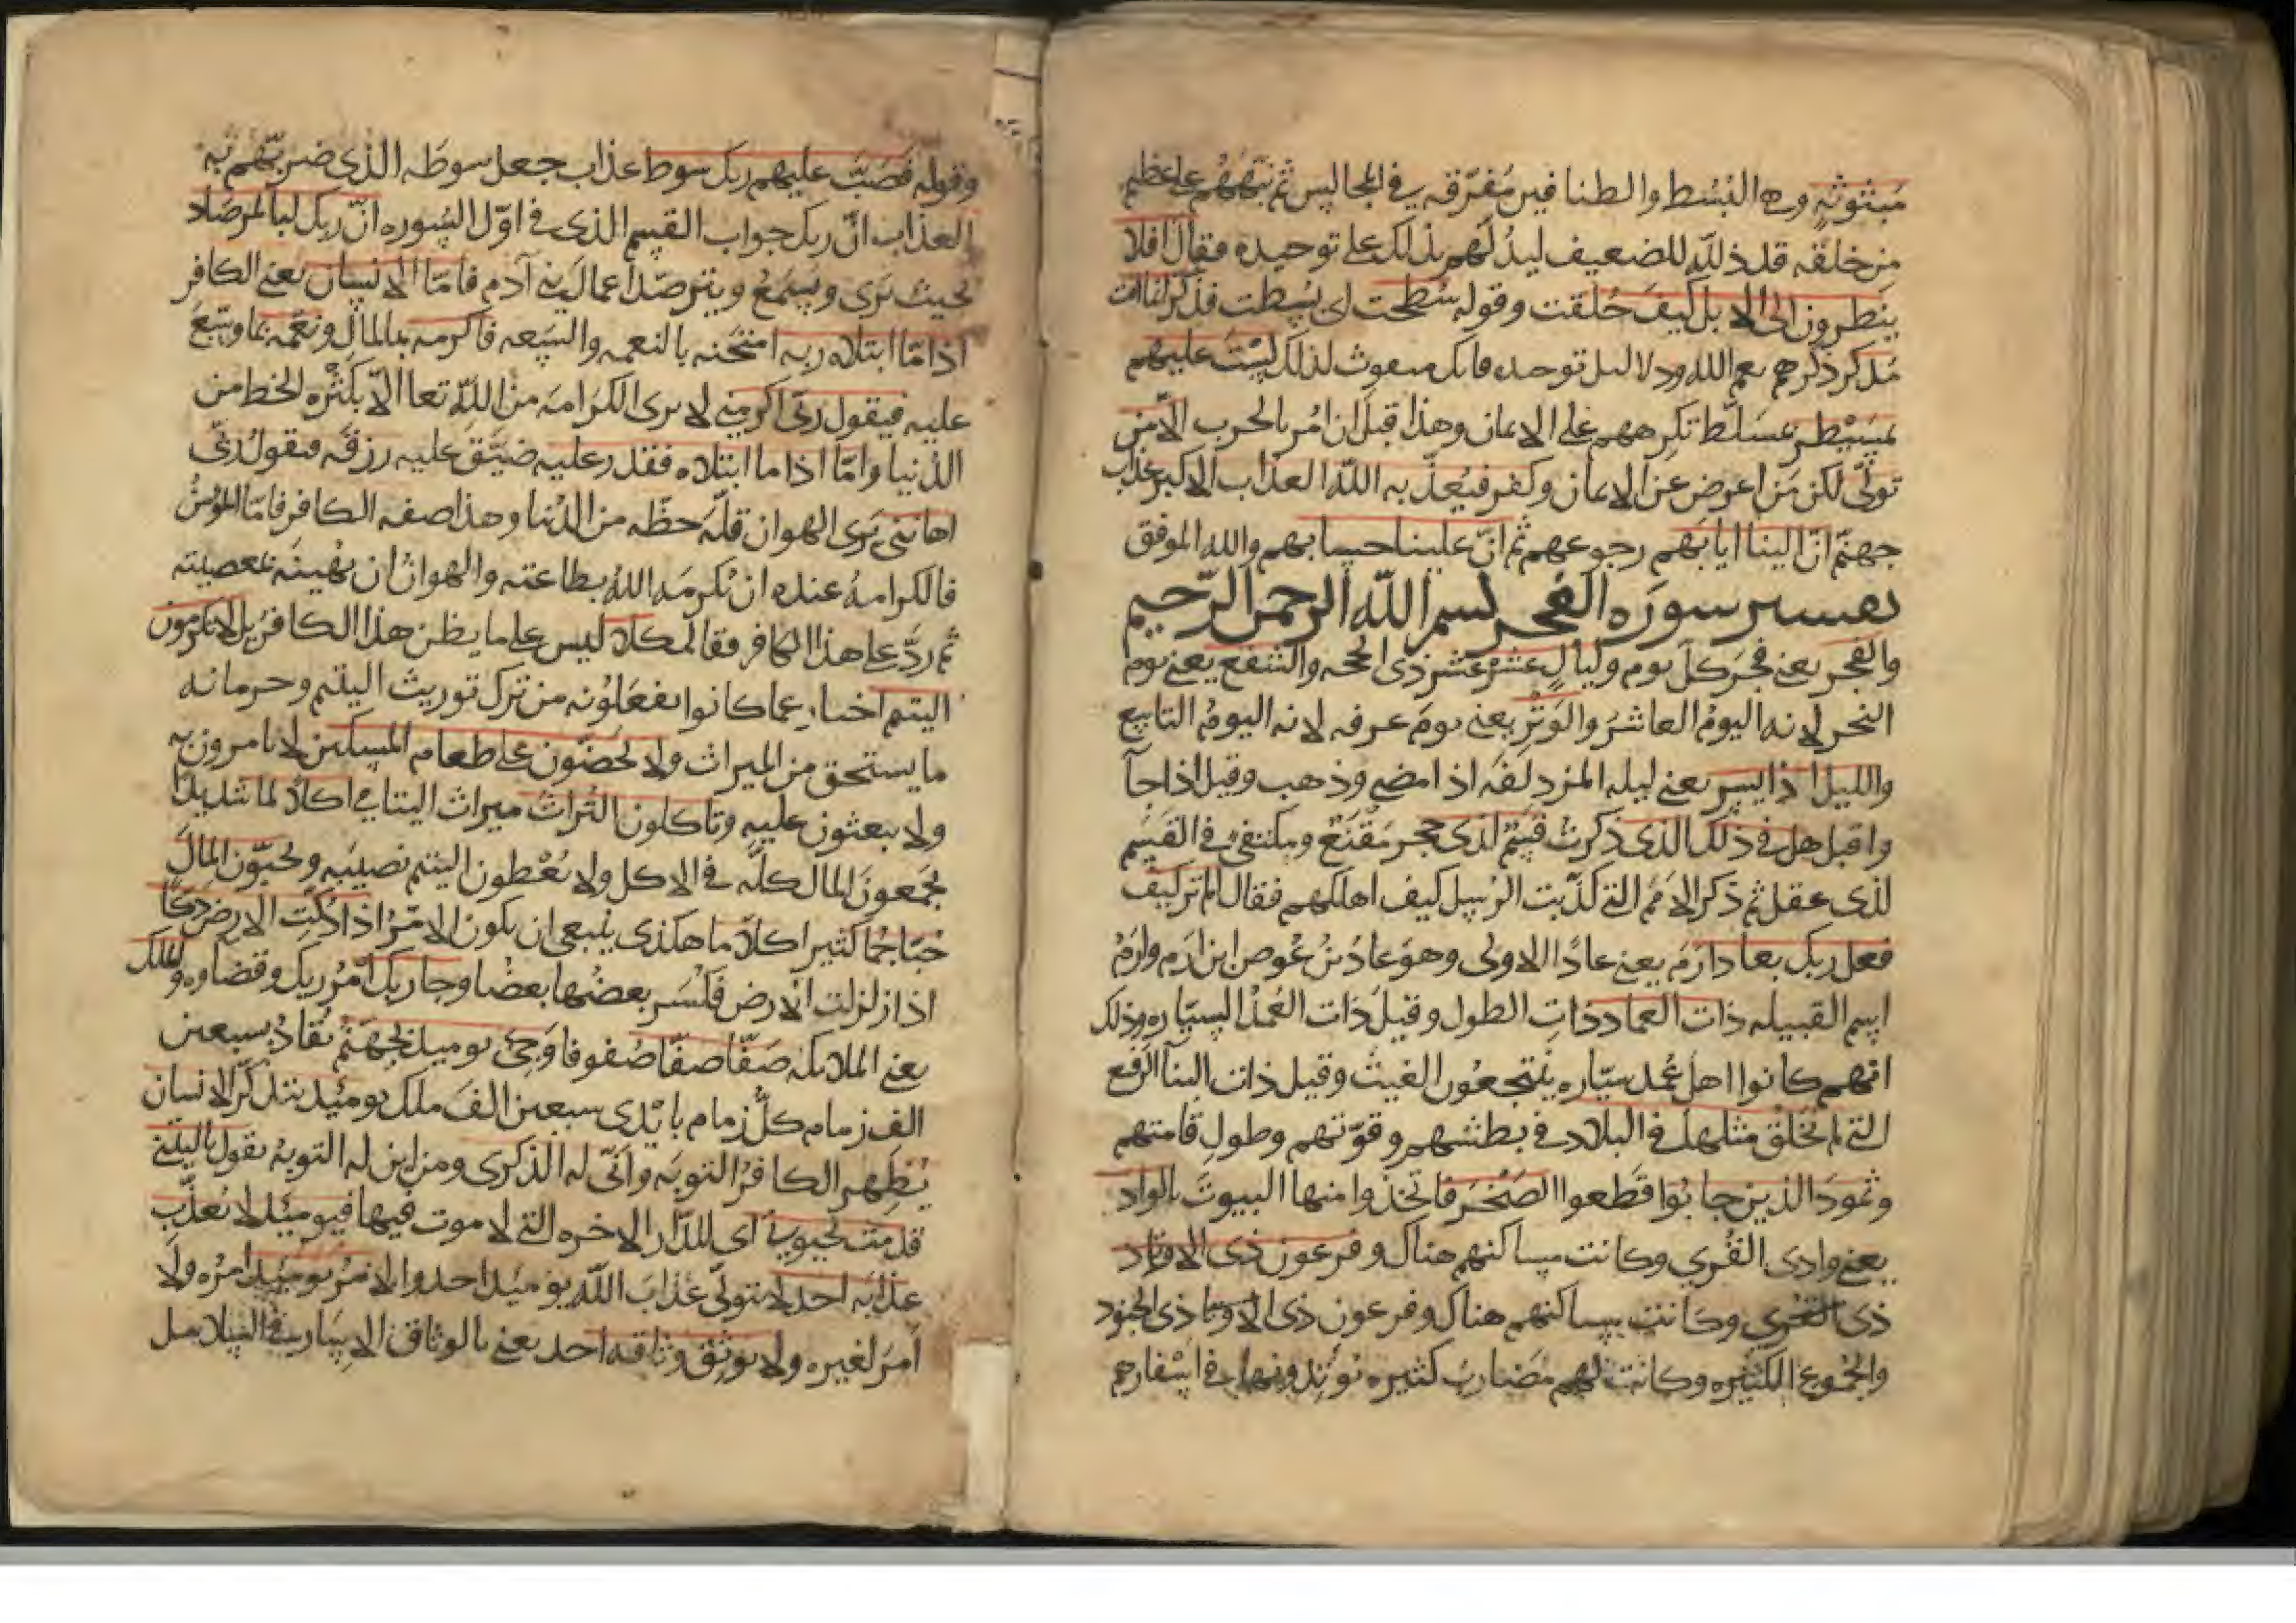 مبثوثة وهي البسط والطنافس مفرّقه في المجالس ثم نبّههم على عظيم
من خلقه قد ذلله للضعيف ليدلهم بذلك على توحيده فقال افلا
ينظرون الى الابل كيف خلقت وقوله سُطحت اى بسطت فذكر انما انت
مذكر ذكرهم نعم الله ودلايل توحيده فانك مبعوث لذلك لست عليهم
بمسيطر بمسلّط تكرههم على الايمان وهذا قبل ان امر بالحرب الّا من
تولّى لكن من اعرض عن الايمان وكفر فيُعذّبه الله العذاب الاكبر عذاب
جهنّم انّ الينا ايابهم رجوعهم ثم انّ علينا حسابهم والله الموفق
تفسير سورة الفجر بسم الله الرحمن الرّحيم
والفجر يعنى فجر كل يوم وليالٍ عشر عشر ذى الحجه والشفع يعنى يوم
النحر لانه اليومُ العاشرُ والوَتْرِ يعنى يوم عرفه لانه اليومُ التاسع
والليل اذا يسر يعنى ليله المزدلفه اذا مضى وذهب وقيل اذا جآ
واقبل هل فى ذلك الذى ذكرت قسَمٌ لذى حجر مَقْنَعٌ ومكتفىً فى القَسَم
لذى عقل ثم ذكر الاممَ التى كذّبت الرسل كيف اهلكهم فقال الم تر كيف
فعل ربك بعاد ارَمَ يعنى عادًا الاولى وهو عادُ بنُ عُوص ابن اِرَم وارَمُ
اسم القبيله ذات العماد ذاتِ الطول وقيل ذات العُمُد السيّاره وذلك
انهم كانوا اهل عُمد سيّاره ينتجعون الغيث وقيل ذات البنآ الرفيع
التى لم يُخلق مثلها فى البلاد فى بطشهم وقوّتهم وطول قامتهم
وثمودَ الذين جابُوا قطعوا الصّخر فاتخذوا منها البيوتَ بالواد
يعنى وادى القُرى وكانت مساكنهم هناك وفرعون ذى الاوتاد
ذى القرى وكانت مساكنهم هناك وفرعون ذى الاوتا ذى الجنود
والجُموع الكثيره وكانت لهم مضاربُ كثيره يُوتِدونها فى اسفارهم
وقوله فصَبّ عليهم ربك سوط عذاب جعل سوطَه الذى ضربَهُم به
العذاب انّ ربك جواب القسم الذى فى اوّل السُوره انّ ربك لبالمرصاد
بحيث يَرى ويسمعُ ويترصّد اعمالَ بنى آدم فامّا الانسان يعنى الكافر
اذا ما ابتلاه ربه امتحنه بالنعمه والسّعه فاكرمه بالمال ونعّمه بما وسّعَ
عليه فيقول ربّى اكرمنى لا يرى الكرامه من الله تعا الّا بكثره الحظ من
الدّنيا وامّا اذا ما ابتلاه فقدر عليه ضيّق عليه رزقَه فيقول ربّى
اهاننى يَرى الهوان قلّة حظّه من الدُنيا وهذا صفه الكافر فامّا المؤمنُ
فالكرامهُ عنده ان يُكرمَه اللهُ بطاعته والهوانُ ان يُهينَه بمعصيته
ثم ردَّ على هذا الكافر فقال كلا ليس على ما يظن هذا الكافر بل لا تكرمون
اليتيم اخبار عما كانوا يفعَلُونه من ترك توريث اليتيم وحرمانه
ما يستحق من الميراث ولا تحضّون على طعام المسكين لا يامرون به
ولا يبعثون عليه وتاكلون التُراثَ ميراثَ اليتامى اكلًا لما شديدًا
يجمعونَ المال كلّه فى الاكل ولا يُعْطون اليتيم نصيبَه وتُحبّون المالَ
حُبّا جَمّا كثيرا كلّا ما هكذى ينبغى ان يكون الامرُ اذا دُكّتِ الارضُ دكًّا
اذا زلزلت الارض فكسر بعضُها بعضًا وجا ربك امرُ ربك وقضاوه والملك
يعنى الملايكه صَفّا صفّا صُفوفا وجِئَ يوميذٍ بجهنّم تُقادُ بسبعين
الف زمام كلُّ زمام بايْدى سبعين الفَ ملك يوميذ يتذكّر الانسان
يُظهِر الكافرُ التوبة وانّى له الذكرى ومن اين له التوبهُ يقول ياليتنى
قدمت لحيوتى اى للدّار الاخره التى لا موت فيها فيوميذ لا يُعذّب
عذابَه احد لا يتولّى عذابَ اللهِ يوميذٍ احد والامرُ يوميذٍ امرُه ولا
امرَ لغيره ولا يوثِقُ وَثاقه احد يعنى بالوثاق الاسار فى السلاسل